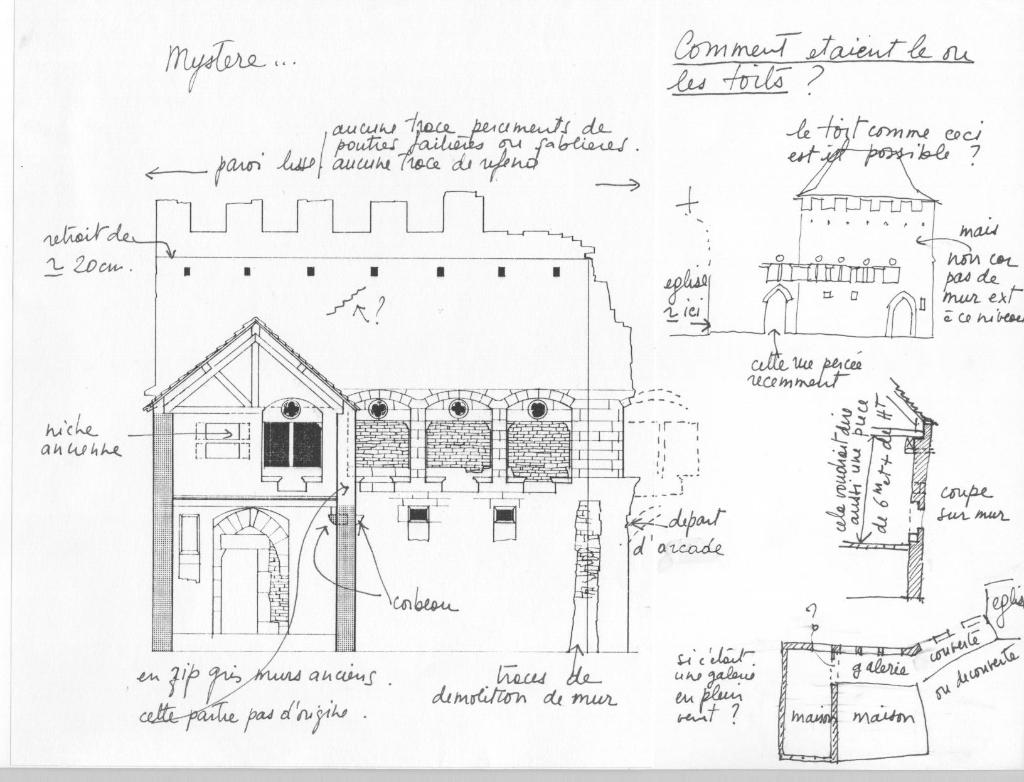 Mystere...
Comment etaient le ou
les toits ?
aucune trace percements de
poutres faitières ou sablieres.
paroi lisse
aucune trace de refend
le toit comme ceci
est il possible ?
retrait de
~ 20cm.
?
mais
non car
pas de
mur ext
à ce niveau
eglise
~ ici
cette vue percée
recemment
niche
ancienne
cela voudrait dire
aussi une piece
de 6 Met + de HT
coupe
sur mur
depart
d'arcade
corbeau
en zip gris murs anciens.
cette partie pas d'origine.
traces de
demolition de mur
?
eglise
si c'était
une galerie
en plein
vent ?
galerie
couverte
ou decouverte
maison
maison